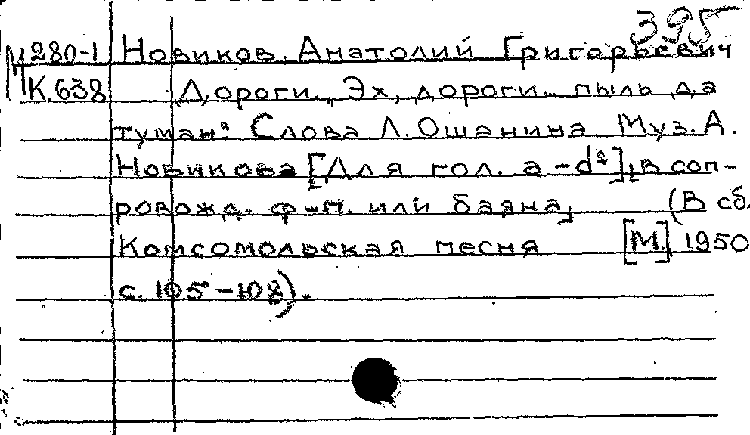 395
М280-1 Новиков, Анатолий Григорьевич
К.638 Дороги. "Эх, дороги... пыль да
туман." Слова Л. Ошанина Муз. А.
Новикова [Для гол. a-d²] [в соп-
ровожд. ф-п. или баяна] (В сб.
Комсомольская песня [М.] 1950
с. 105-108).